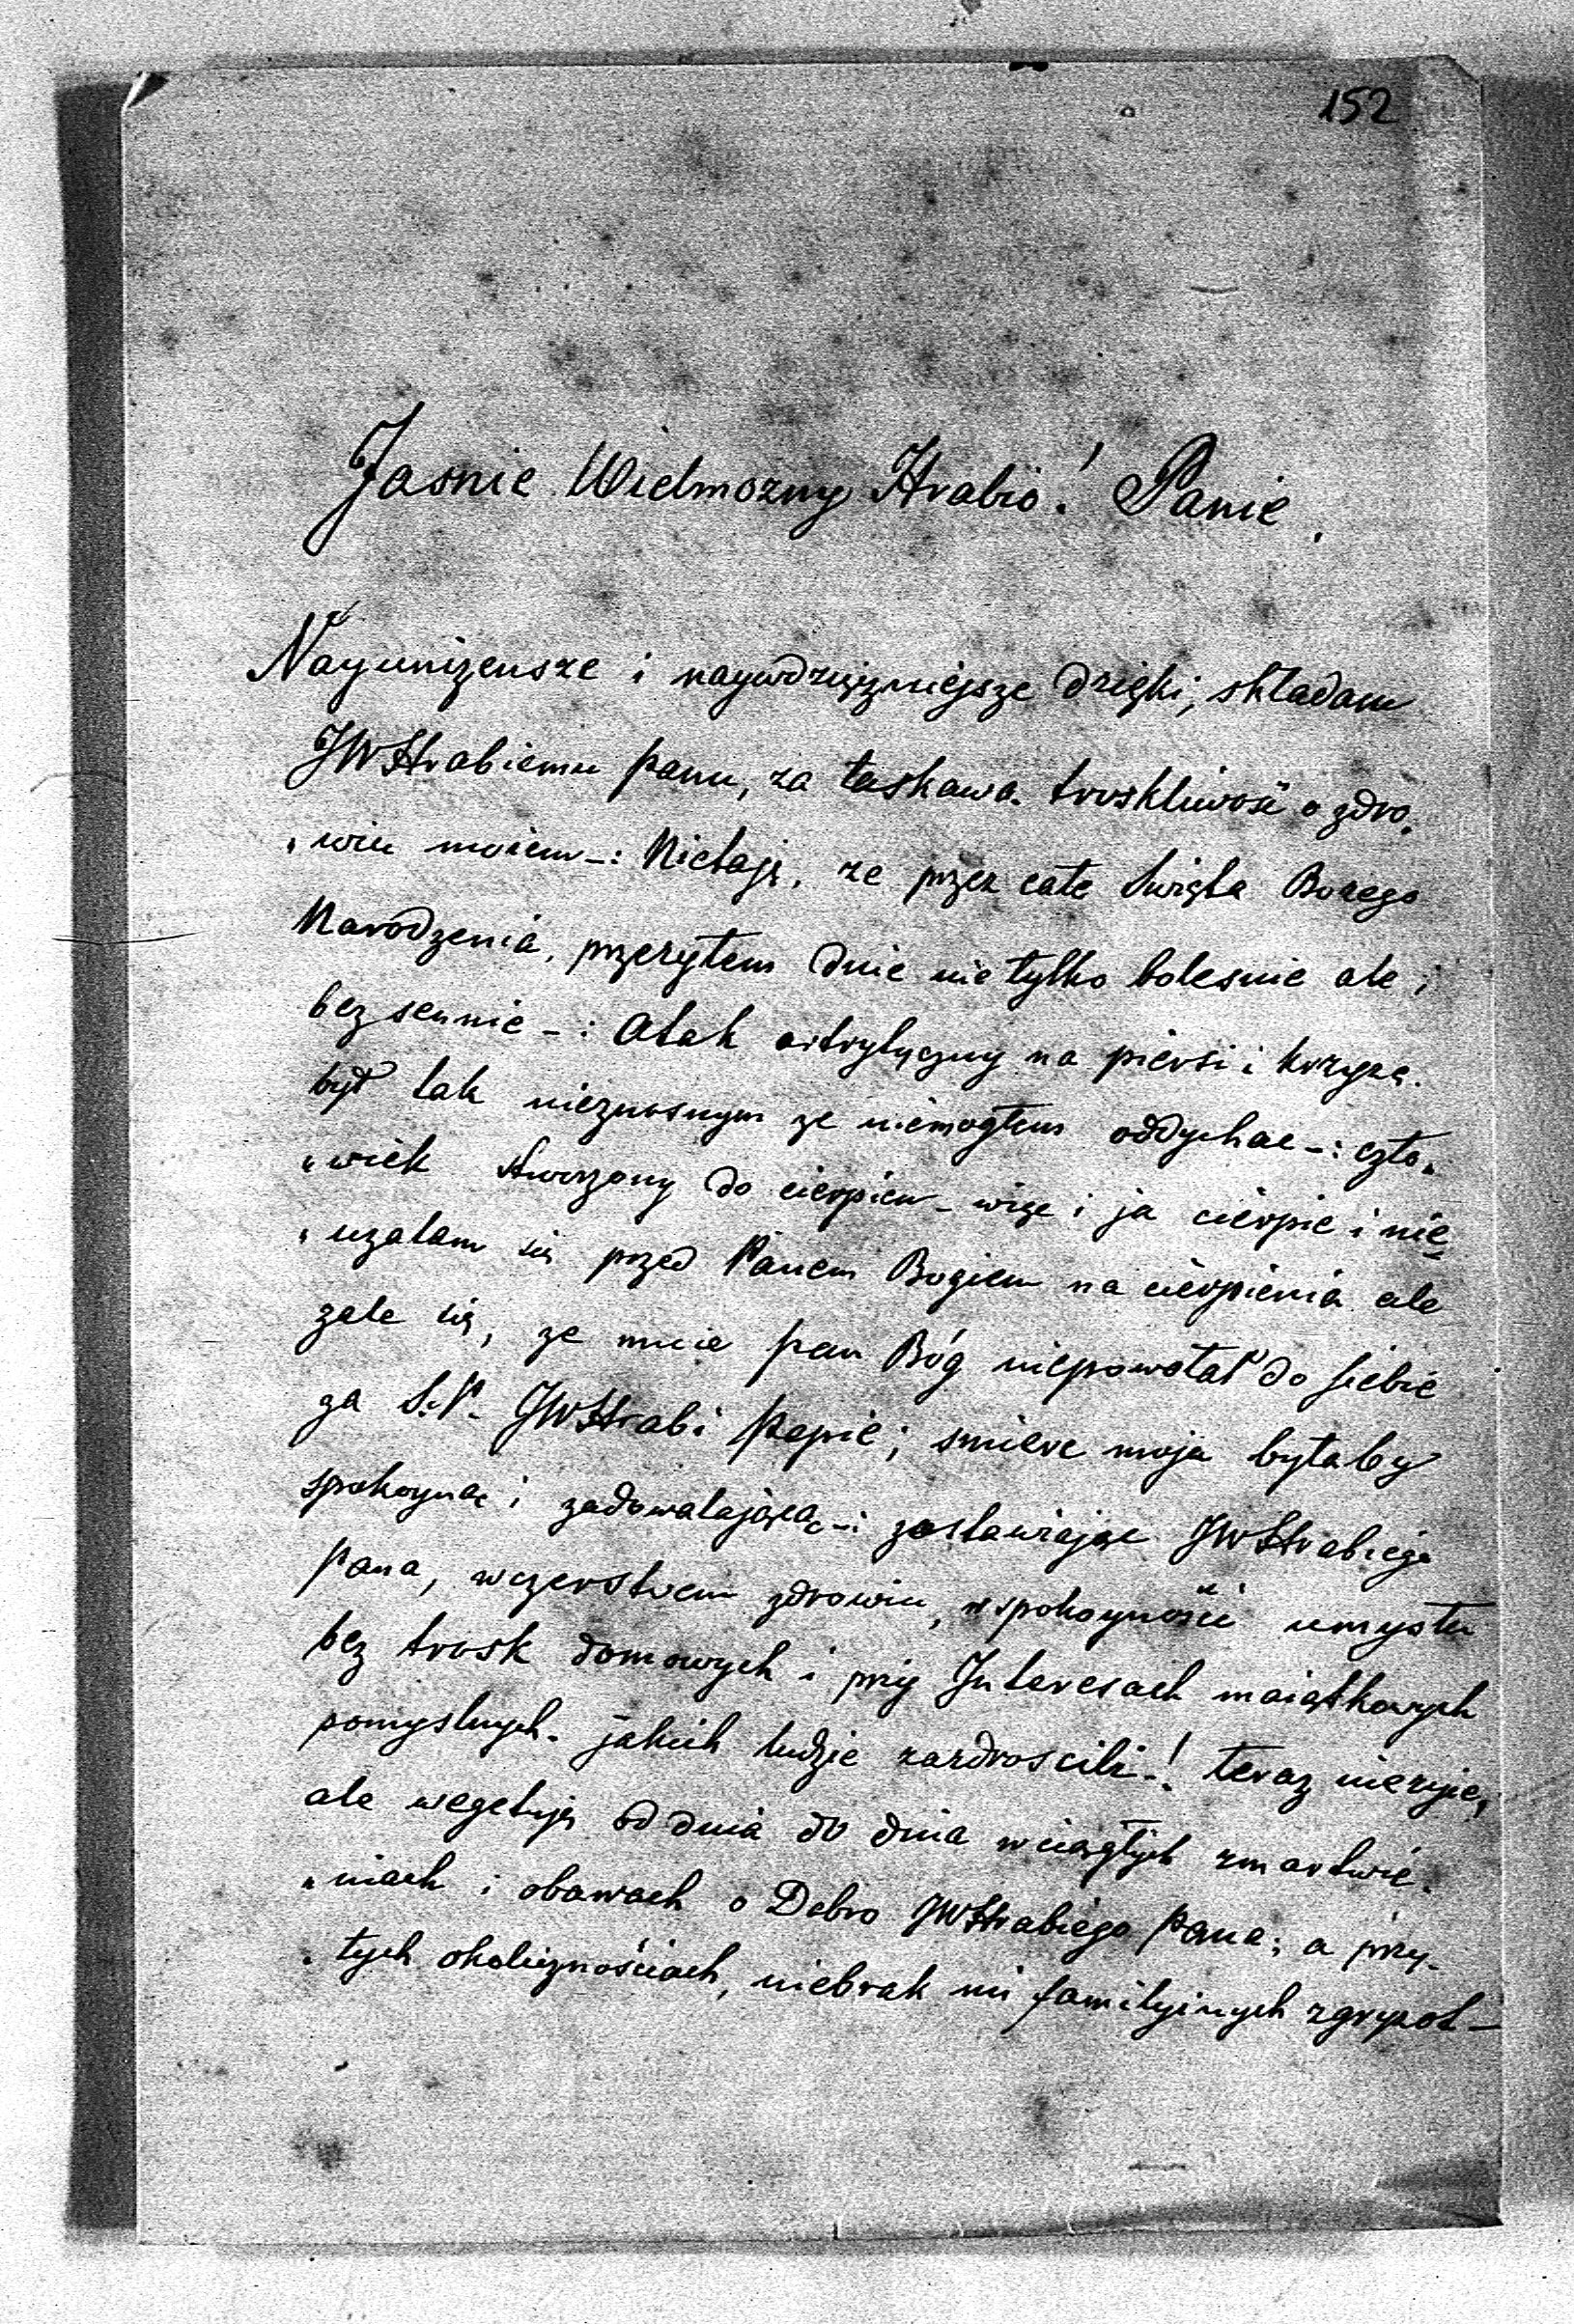 152
Jasnie Wielmozny Hrabio! Panie
Nayunizensze i naywdzięzniejsze dzięki, składam
JWHrabiemu panu, za łaskawa troskliwość o zdro„
„wiu moiem -: Nietaję, ze przez całe Święta Bozego
Narodzenia, przezyłem dnie nie tylko bolesnie ale i
bezsennie -: Atak artrytyczny na piersi i krzyze.
był tak nieznosnym ze niemogłem oddychac -: czło„
„wiek stworzony do cierpien - więc i ja cierpie i nie
„uzalam się przed Panem Bogiem na cierpienia ale
zale się, ze mnie pan Bóg niepowołał do siebie
za S.P. JWHrabi papie; smierc moja byłaby
spokoyną i zadowalającą -: zostawiając JWHrabiego
pana, wczerstwem zdrowiu, w spokoyności umysłu
bez trosk domowych i przy Interesach maiątkowych
pomyslnych. jakich ludzie zazdroscili -! teraz niezyie,
ale wegetuję od dnia do dnia w ciągłych zmartwie„
„niach i obawach o Dobro JWHrabiego pana; a przy„
„tych okolicznościach, niebrak mi familyinych zgryzot -